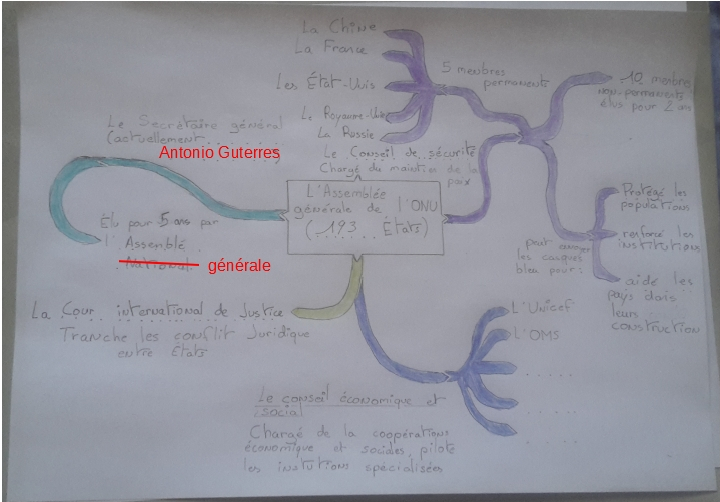 La Chine
La France
Les État-Unis
Le Royaume-Unis
La Russie
5 menbres
permanents
10 menbres
non-permanents
élus pour 2 ans
Le Conseil de sécurité
Chargé du maintien de la
paix
Protégé les
populations
renforcé les
institutions
aidé les
pays dans
leurs
construction
peut envoyer
les casques
bleu pour:
Le Secrétaire général
(actuellement
Antonio Guterres)
Élu pour 5 ans par
l'Assemblé
National générale
L'Assemblée
générale de l'ONU
(193 États)
La Cour international de Justice
Tranche les conflit Juridique
entre États
L'Unicef
L'OMS
.....
.....
.....
Le conseil économique et
social
Chargé de la coopérations
économique et sociales, pilote
les instutions spécialisées